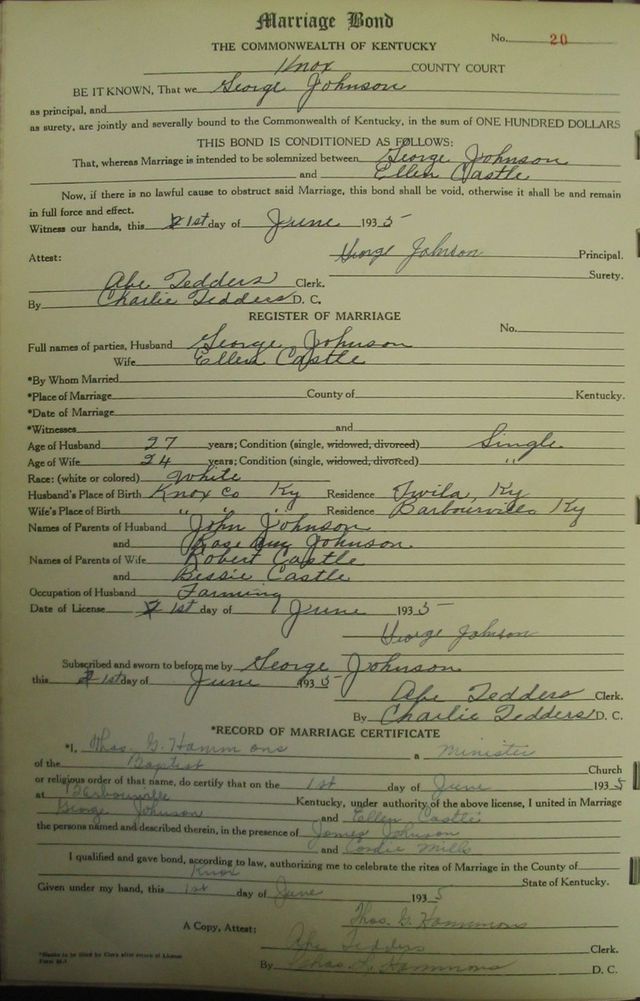 Marriage Bond
No. 20
THE COMMONWEALTH OF KENTUCKY
Knox COUNTY COURT
BE IT KNOWN, That we George Johnson
as principal, and
as surety, are jointly and severally bound to the Commonwealth of Kentucky, in the sum of ONE HUNDRED DOLLARS
THIS BOND IS CONDITIONED AS FOLLOWS:
That, whereas Marriage is intended to be solemnized between George Johnson
and Ellen Castle
Now, if there is no lawful cause to obstruct said Marriage, this bond shall be void, otherwise it shall be and remain
in full force and effect.
Witness our hands, this 1st day of June 1935
George Johnson Principal.
Attest: Surety.
Abe Tedders Clerk.
By Charlie Tedders D. C.
REGISTER OF MARRIAGE
No.
Full names of parties, Husband George Johnson
Wife Ellen Castle
*By Whom Married
*Place of Marriage County of Kentucky.
*Date of Marriage
*Witnesses and
Age of Husband 27 years; Condition (single, widowed, divorced) Single
Age of Wife 24 years; Condition (single, widowed, divorced) "
Race: (white or colored) White
Husband's Place of Birth Knox Co Ky Residence Twila, Ky
Wife's Place of Birth " " " Residence Barbourville Ky
Names of Parents of Husband John Johnson
and Rose Johnson
Names of Parents of Wife Robert Castle
and Bessie Castle
Occupation of Husband Farming
Date of License 1st day of June 1935
George Johnson
Subscribed and sworn to before me by George Johnson
this 1st day of June 1935
Abe Tedders Clerk.
By Charlie Tedders D. C.
*RECORD OF MARRIAGE CERTIFICATE
*I, Thos. G. Hammons a Minister
of the Baptist Church
or religious order of that name, do certify that on the 1st day of June 1935
at Barbourville Kentucky, under authority of the above license, I united in Marriage
George Johnson and Ellen Castle
the persons named and described therein, in the presence of James Johnson
and Cordie Mills
I qualified and gave bond, according to law, authorizing me to celebrate the rites of Marriage in the County of
Knox State of Kentucky.
Given under my hand, this 1st day of June 1935
Thos. G. Hammons
A Copy, Attest:
Abe Tedders Clerk.
*Blanks to be filled by Clerk after return of License
Form M-1
By Chas. H. Hammons D. C.